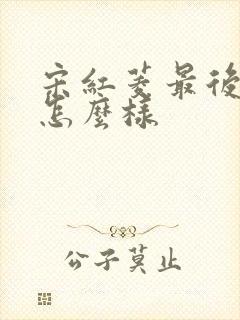 宋紅菱最後
怎麼樣
公子莫止